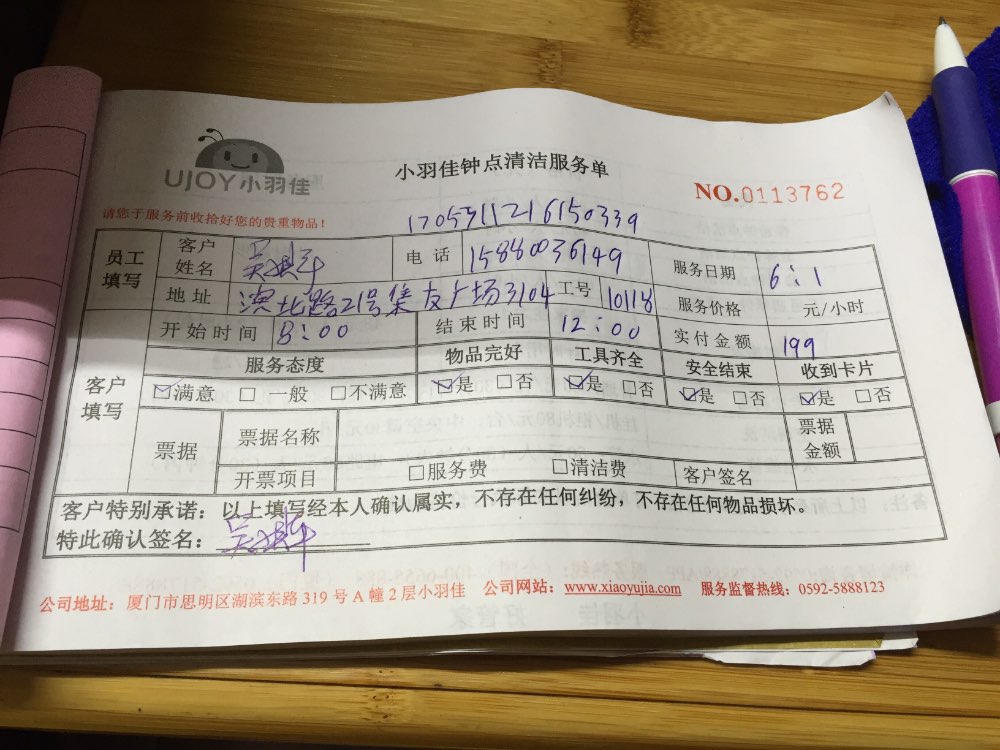 UJOY小羽佳
小羽佳钟点清洁服务单
NO.0113762
请您于服务前收拾好您的贵重物品！
1705311216150339
员工填写 客户姓名 电话 15880036149 服务日期 6:1
地址 滨北路21号集友广场3104 工号 10118 服务价格 元/小时
客户填写 开始时间 8:00 结束时间 12:00 实付金额 199
服务态度 物品完好 工具齐全 安全结束 收到卡片
☑满意 □一般 □不满意 ☑是 □否 ☑是 □否 ☑是 □否 ☑是 □否
票据 票据名称 票据金额
开票项目 □服务费 □清洁费 客户签名
客户特别承诺：以上填写经本人确认属实，不存在任何纠纷，不存在任何物品损坏。
特此确认签名：
公司地址：厦门市思明区湖滨东路 319 号 A 幢 2 层小羽佳 公司网站：www.xiaoyujia.com 服务监督热线：0592-5888123